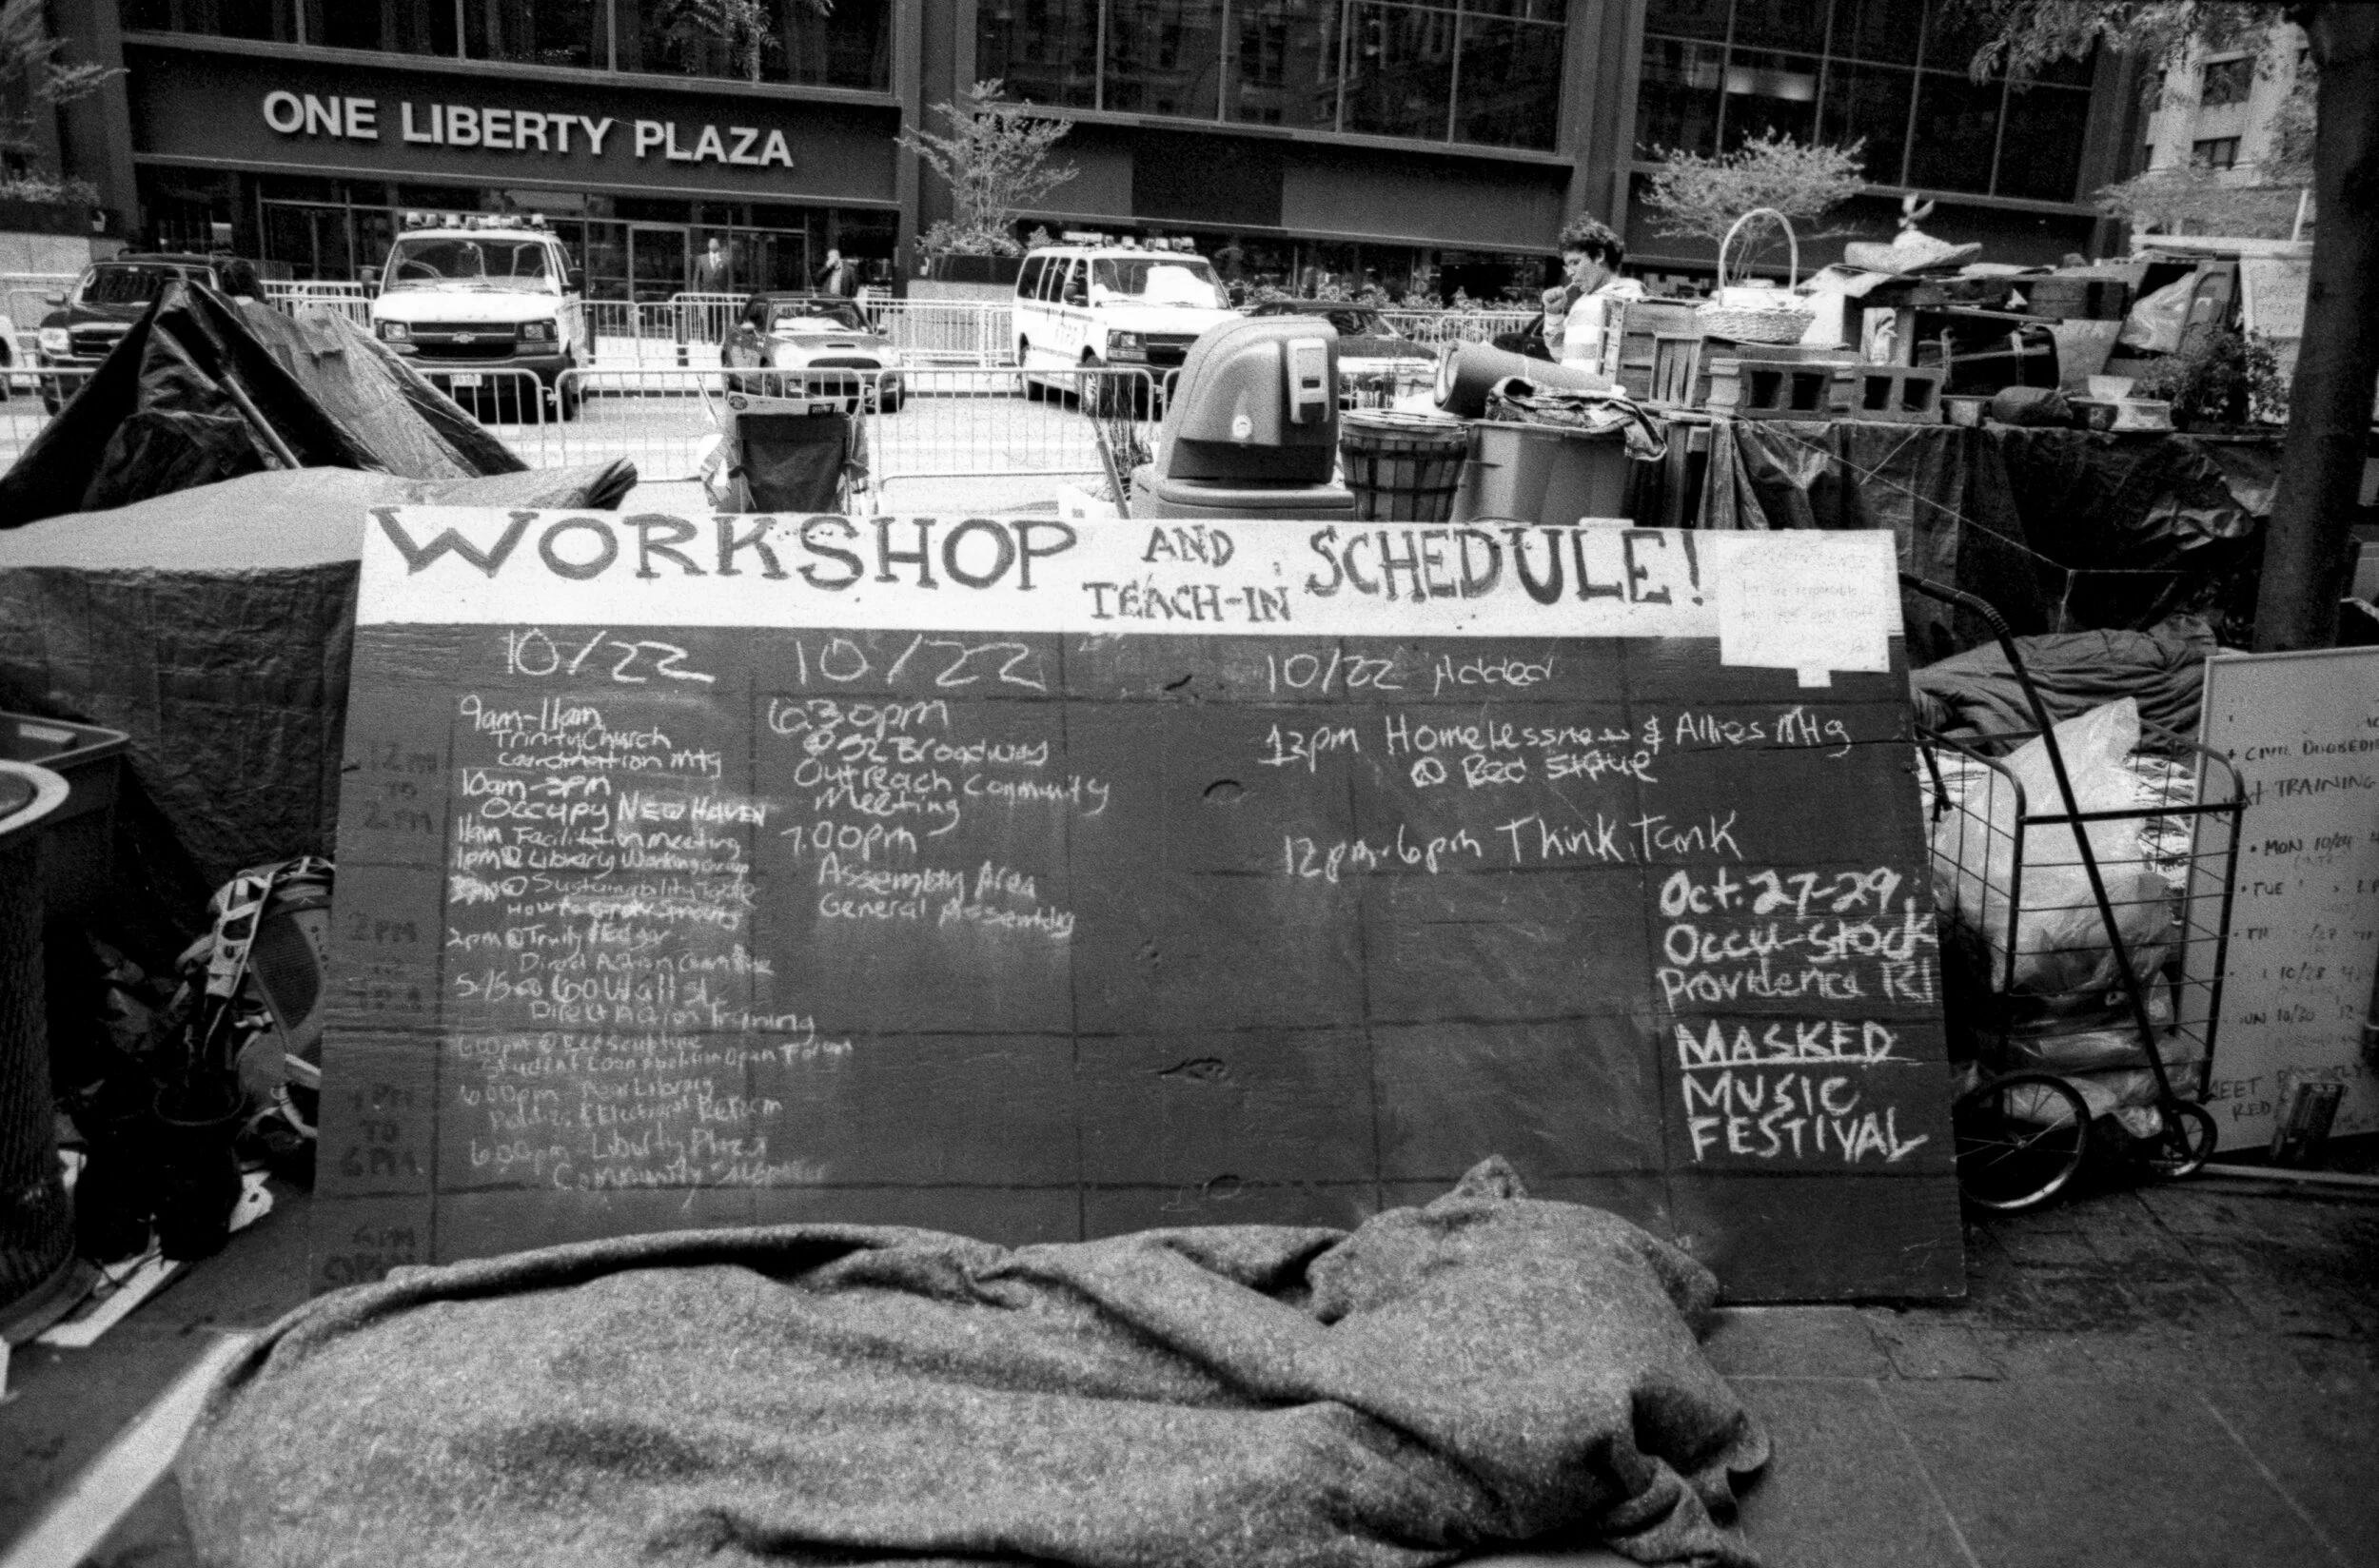 ONE LIBERTY PLAZA
WORKSHOP AND TEACH-IN SCHEDULE!
10/22
9am-11am
Trinity Church
coordination mtg
10am-3pm
Occupy NEW HAVEN
11am Facilitation meeting
1pm @ Library Working Group
Sustainability Table
How to Grow Sprouts
2pm @ Trinity/Edgar
Direct Action Committee
60 Wall St.
Direct Action Training
6:00pm @ Red Sculpture
Student Loan Open Forum
6:00pm - Library
Politics & Electoral Reform
6:00pm - Liberty Plaza
Community
10/22
6:30pm
@ 52 Broadway
Outreach Community
Meeting
7:00pm
Assembly Area
General Assembly
10/22 Added
12pm Homelessness & Allies Mtg
@ Red Statue
12pm-6pm Think Tank
Oct. 27-29
Occu-Stock
Providence RI
MASKED
MUSIC
FESTIVAL
12PM
TO
2PM
2PM
4PM
4PM
TO
6PM
6PM
CIVIL
TRAINING
• MON 10/24
• TUE
10/28
10/30
RED